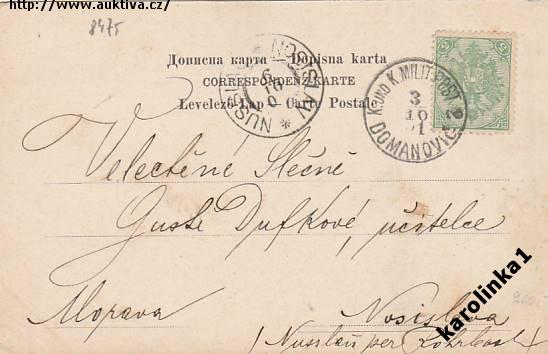 http://www.auktiva.cz/
8475
Дописна карта — Dopisna karta
CORRESPONDENZ-KARTE
Levelező-Lap — Carte Postale
NOSISLAV
NUSSL
K. UND K. MILIT. POST
3
10
DOMANOVIC
5
Velectěné Slečně
Gustě Dufkové, učitelce
Morava
Nosislava
(Nusslau per Rohrbach)
karolinka1